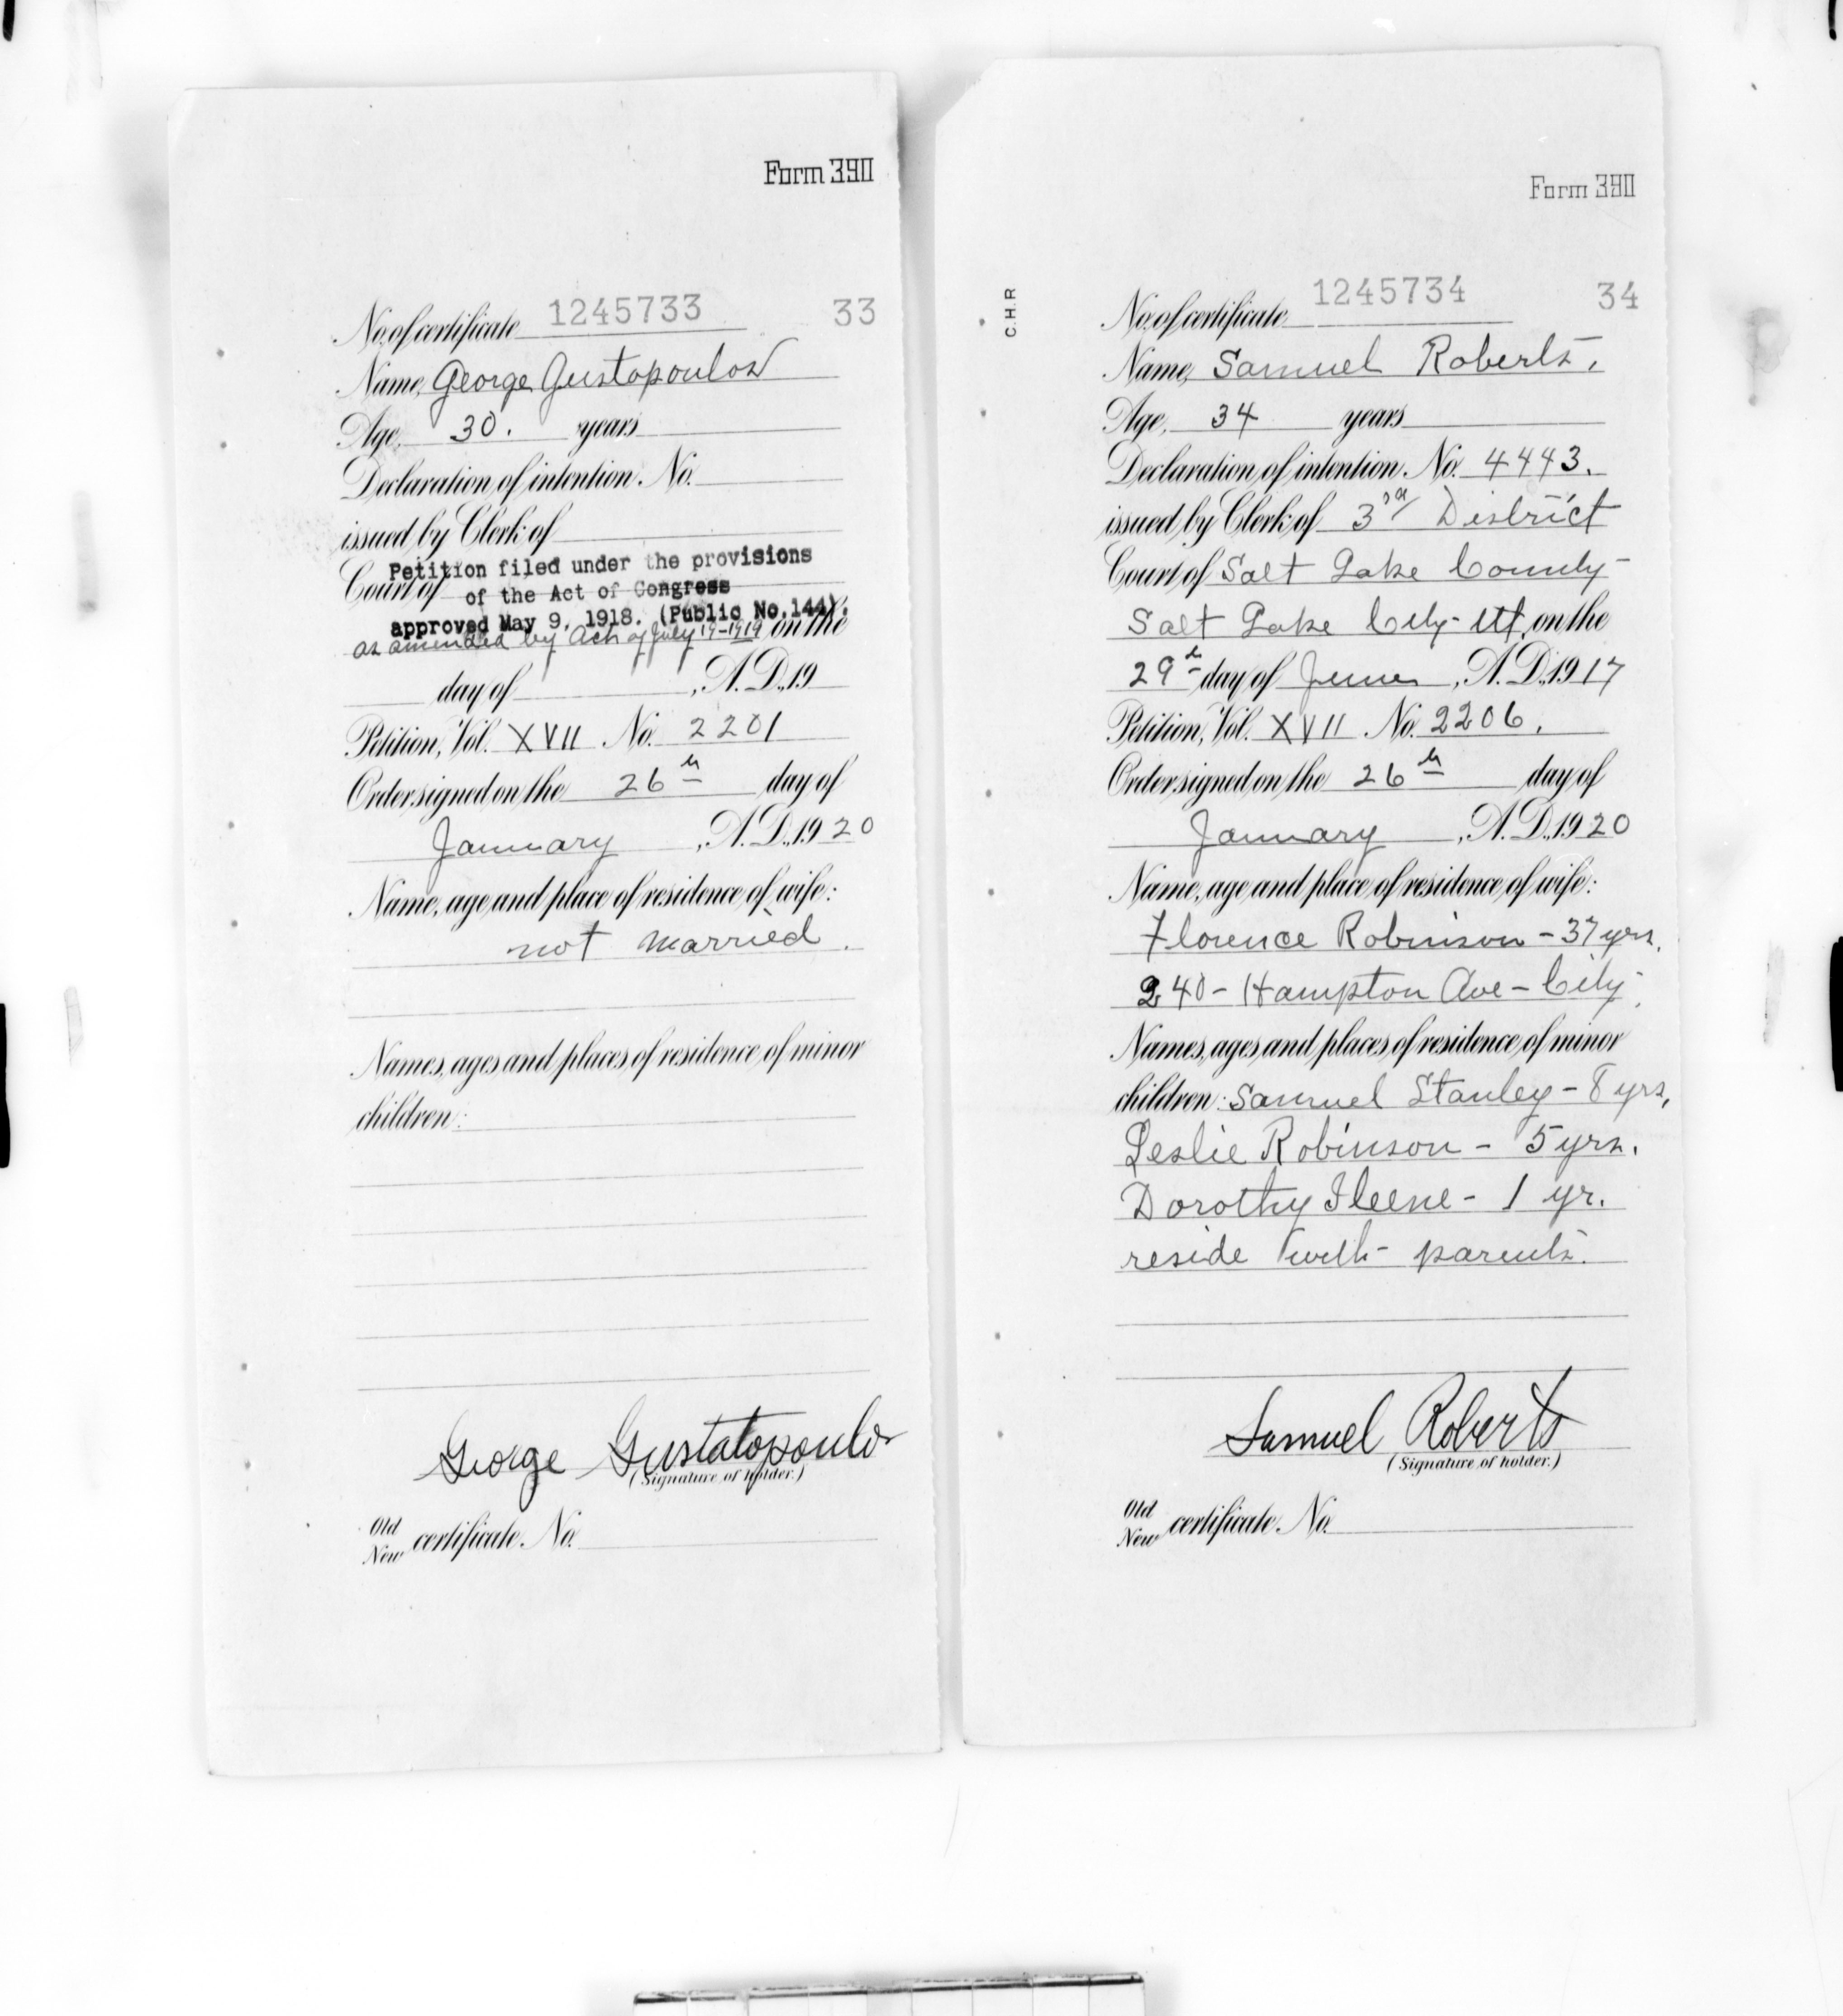 Form 390
No. of certificate 1245733 33
Name, George Gustopoulos
Age, 30. years
Declaration of intention No.
issued by Clerk of
Court of
Petition filed under the provisions
of the Act of Congress
approved May 9, 1918. (Public No. 144).
as amended by Act of July 19-1919 on the
day of , A. D., 19
Petition, Vol. XVII No. 2201
Order signed on the 26th day of
January , A. D., 1920
Name, age and place of residence of wife:
not married.
Names, ages and places of residence of minor
children:
George Gustatopoulos
(Signature of holder.)
Old
New certificate No.
Form 390
C.H.R
No. of certificate 1245734 34
Name, Samuel Roberts,
Age, 34 years
Declaration of intention No. 4443.
issued by Clerk of 3rd District
Court of Salt Lake County-
Salt Lake City- Ut, on the
29th day of June , A. D., 1917
Petition, Vol. XVII No. 2206.
Order signed on the 26th day of
January , A. D., 1920
Name, age and place of residence of wife:
Florence Robinson - 37 yrs.
240 - Hampton Ave - City.
Names, ages and places of residence of minor
children: Samuel Stanley - 8 yrs,
Leslie Robinson - 5 yrs.
Dorothy Ileene - 1 yr.
reside with parents.
Samuel Roberts
(Signature of holder.)
Old
New certificate No.